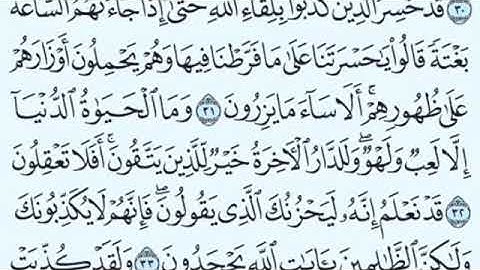 ٣٠ قَدْ خَسِرَ ٱلَّذِينَ كَذَّبُوا۟ بِلِقَآءِ ٱللَّهِ حَتَّىٰٓ إِذَا جَآءَتْهُمُ ٱلسَّاعَةُ
بَغْتَةً قَالُوا۟ يَٰحَسْرَتَنَا عَلَىٰ مَا فَرَّطْنَا فِيهَا وَهُمْ يَحْمِلُونَ أَوْزَارَهُمْ
عَلَىٰ ظُهُورِهِمْ ۚ أَلَا سَآءَ مَا يَزِرُونَ ٣١ وَمَا ٱلْحَيَوٰةُ ٱلدُّنْيَآ
إِلَّا لَعِبٌ وَلَهْوٌ ۖ وَلَلدَّارُ ٱلْءَاخِرَةُ خَيْرٌ لِّلَّذِينَ يَتَّقُونَ ۗ أَفَلَا تَعْقِلُونَ
٣٢ قَدْ نَعْلَمُ إِنَّهُۥ لَيَحْزُنُكَ ٱلَّذِى يَقُولُونَ ۖ فَإِنَّهُمْ لَا يُكَذِّبُونَكَ
وَلَٰكِنَّ ٱلظَّٰلِمِينَ بِـَٔايَٰتِ ٱللَّهِ يَجْحَدُونَ ٣٣ وَلَقَدْ كُذِّبَتْ